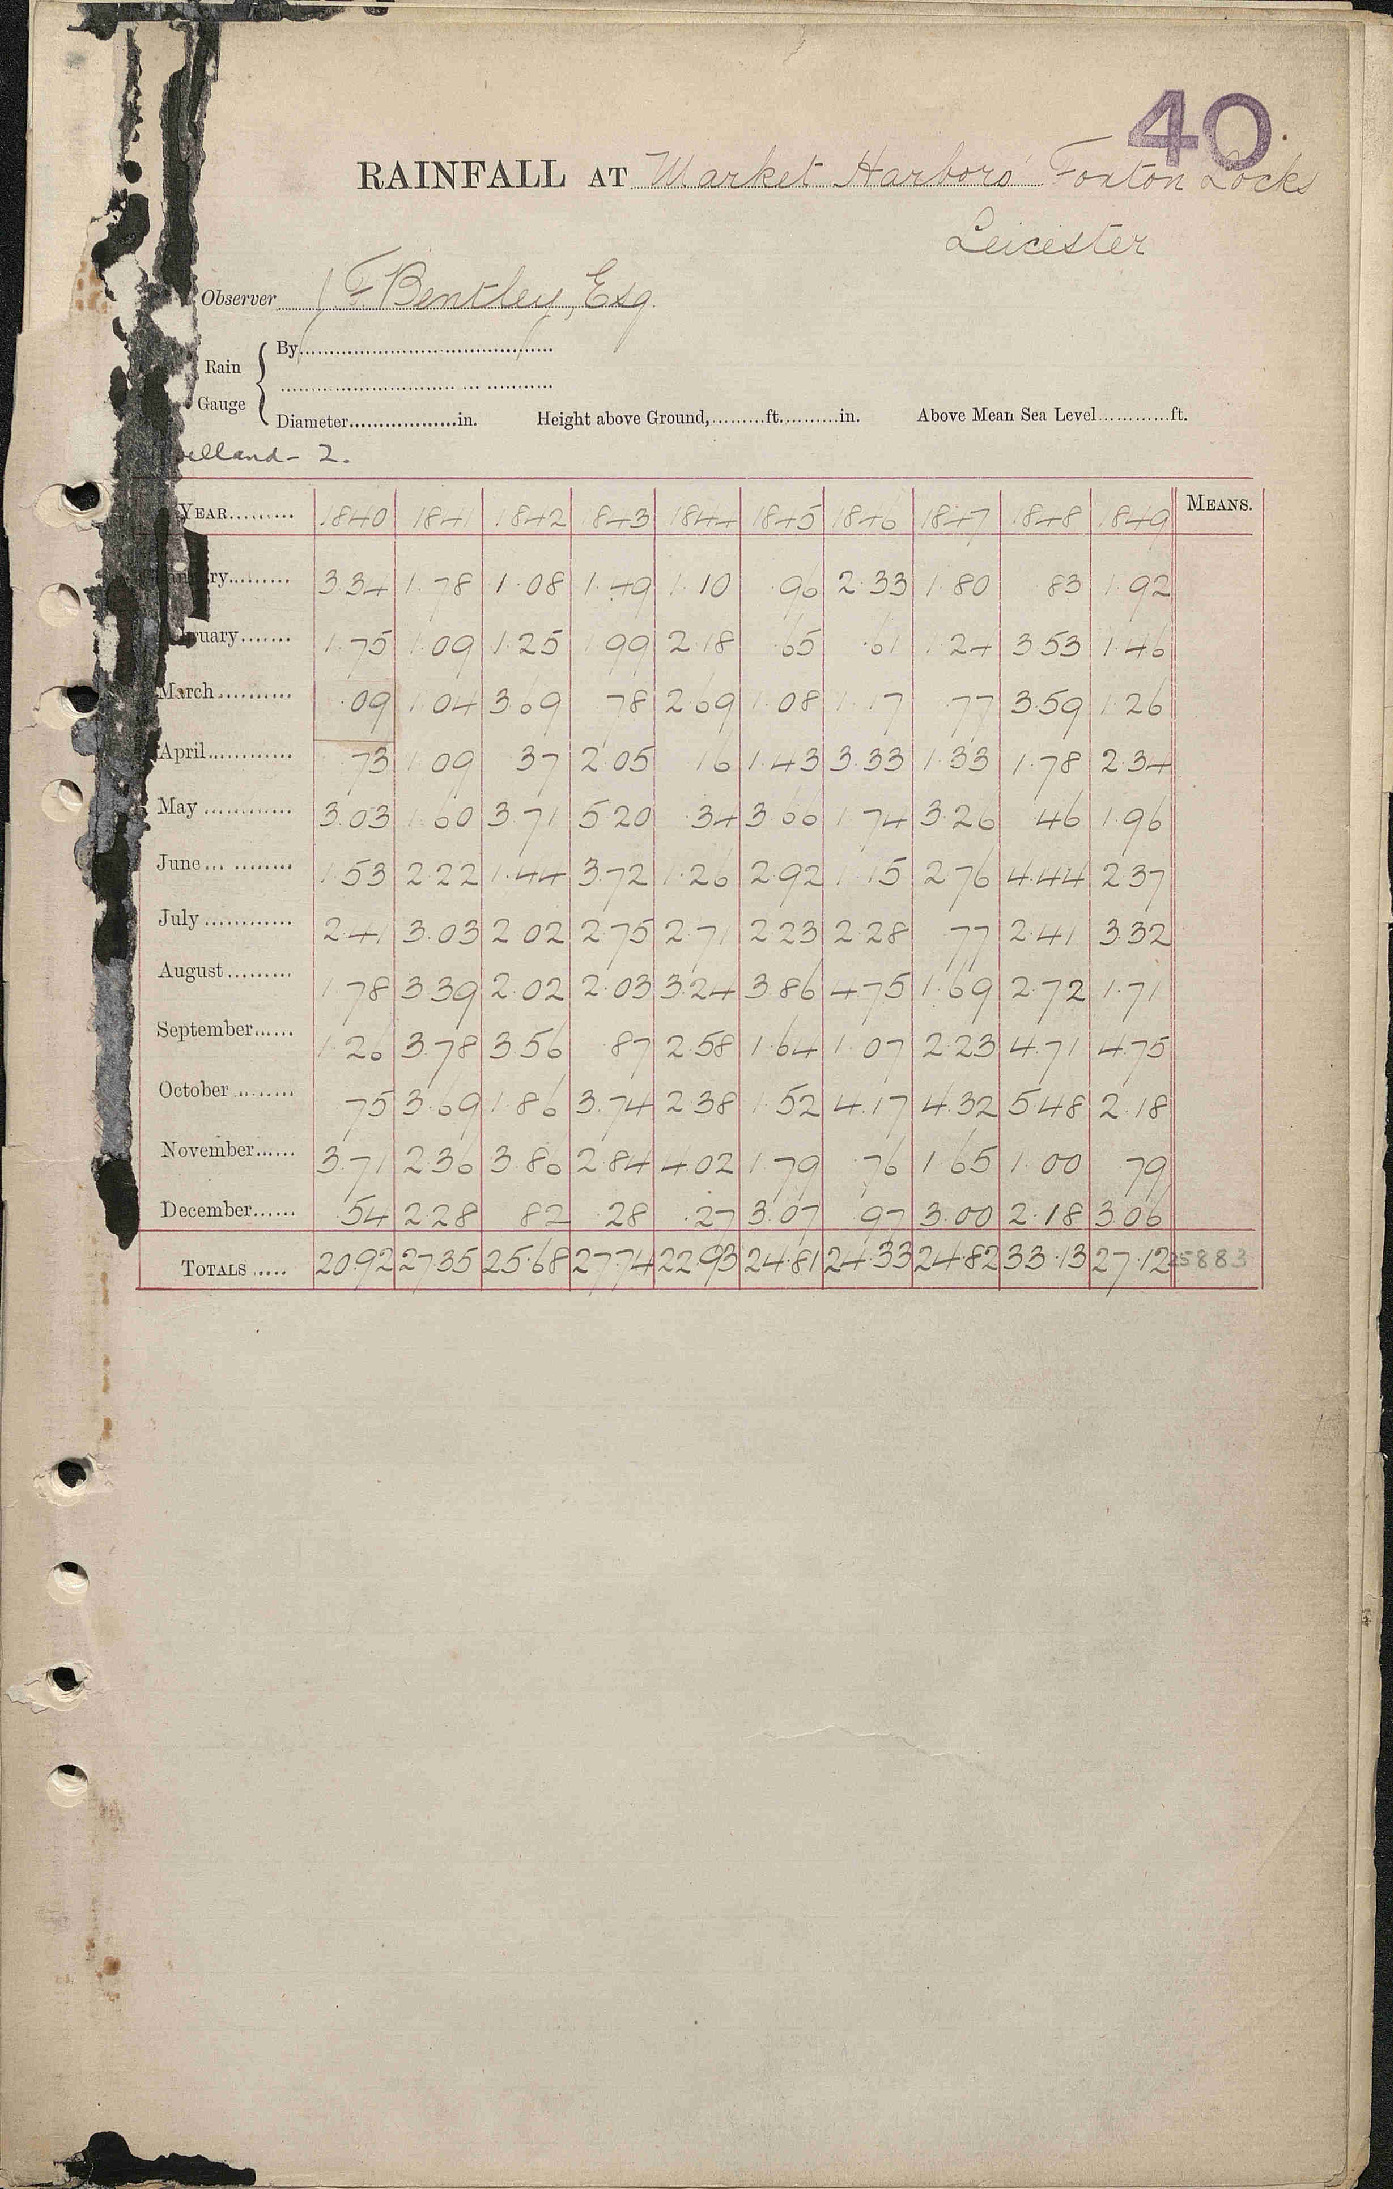 40
RAINFALL AT Market Harboro' Foxton Locks
Leicester
Observer J. F. Bentley, Esq.
Rain Gauge { By
Diameter in. Height above Ground, ft. in. Above Mean Sea Level ft.
elland - 2.
YEAR 1840 1841 1842 1843 1844 1845 1846 1847 1848 1849 MEANS.
ry 3.34 1.78 1.08 1.49 1.10 .96 2.33 1.80 .83 1.92
ruary 1.75 1.09 1.25 1.99 2.18 .65 .61 1.24 3.53 1.46
March .09 1.04 3.69 .78 2.69 1.08 1.17 .77 3.59 1.26
April .73 1.09 .37 2.05 .16 1.43 3.33 1.33 1.78 2.34
May 3.03 1.60 3.71 5.20 .34 3.66 1.74 3.26 .46 1.96
June 1.53 2.22 1.44 3.72 1.26 2.92 1.15 2.76 4.44 2.37
July 2.41 3.03 2.02 2.75 2.71 2.23 2.28 .77 2.41 3.32
August 1.78 3.39 2.02 2.03 3.24 3.86 4.75 1.69 2.72 1.71
September 1.26 3.78 3.56 .87 2.58 1.64 1.07 2.23 4.71 4.75
October .75 3.69 1.86 3.74 2.38 1.52 4.17 4.32 5.48 2.18
November 3.71 2.36 3.86 2.84 4.02 1.79 .76 1.65 1.00 .79
December .54 2.28 .82 .28 .27 3.07 .97 3.00 2.18 3.06
TOTALS 20.92 27.35 25.68 27.74 22.93 24.81 24.33 24.82 33.13 27.12 25883